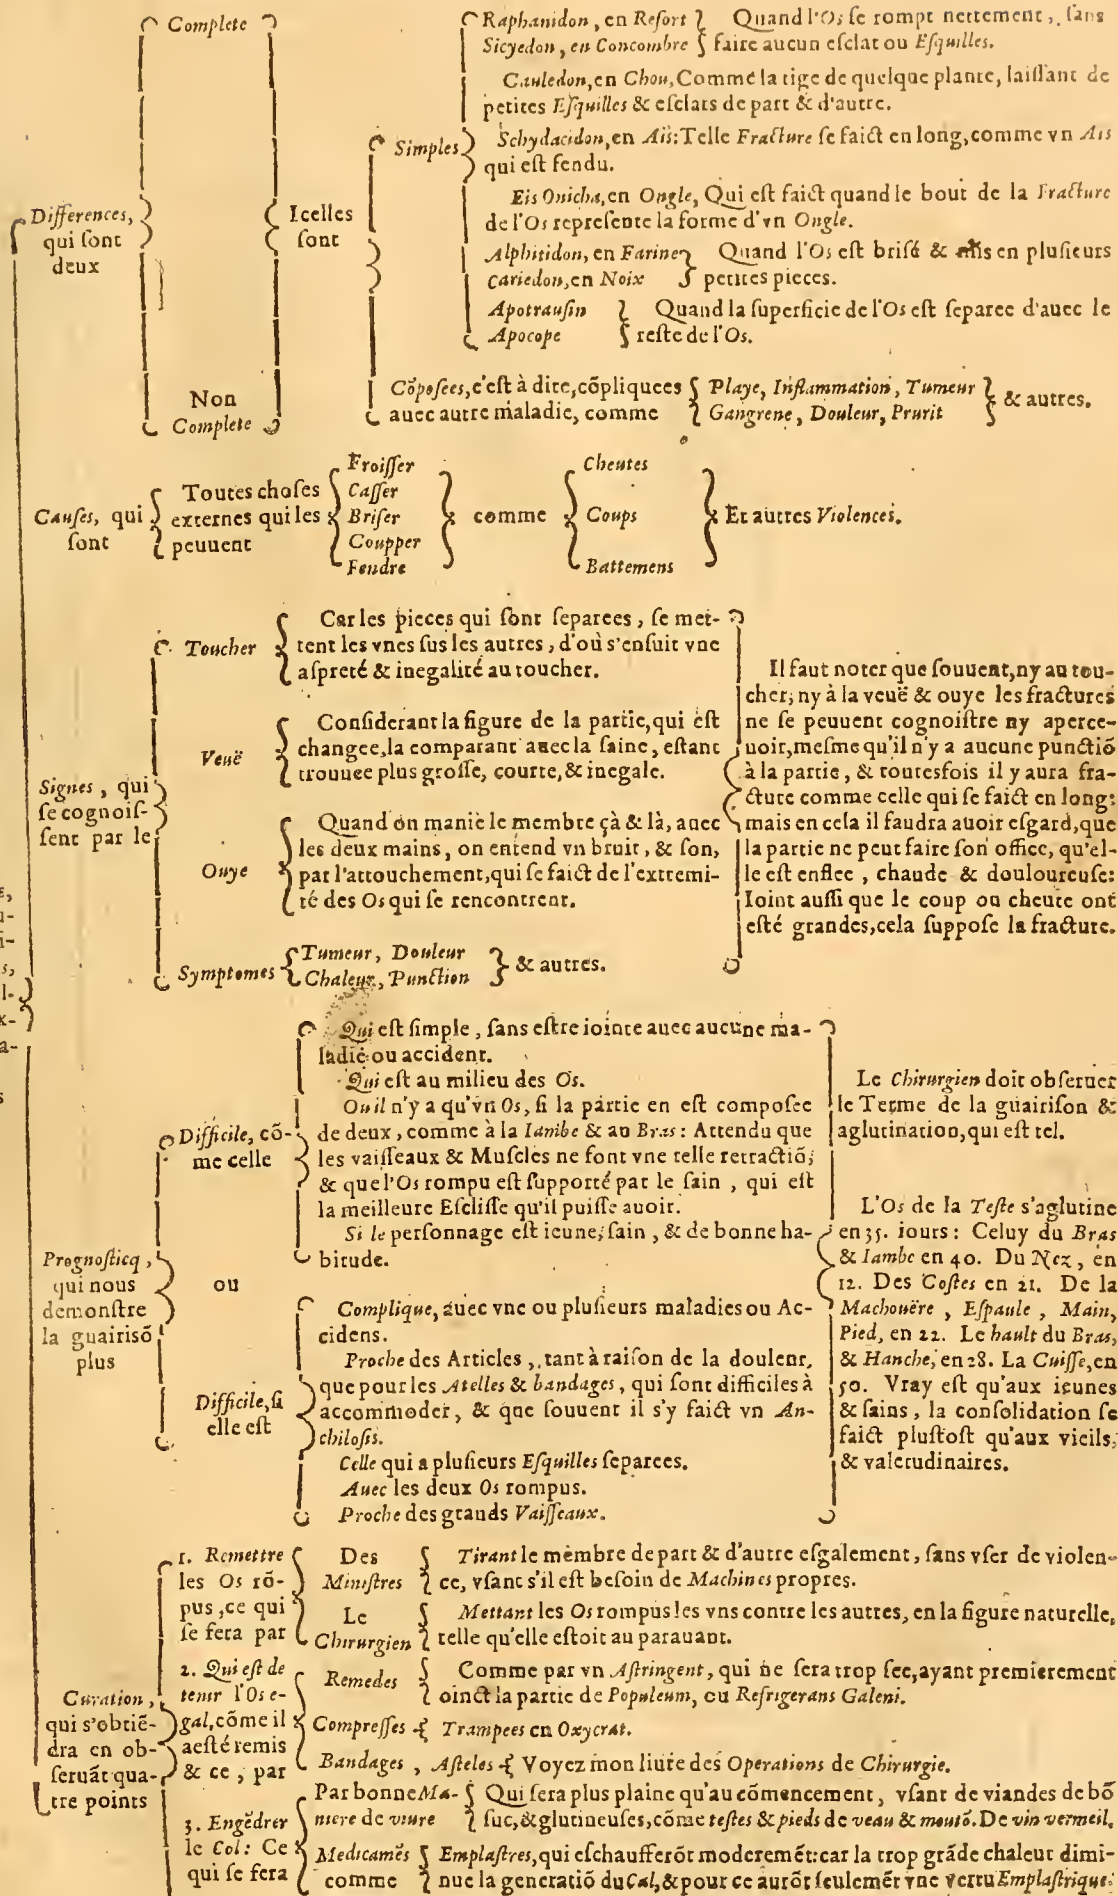 Differences,
qui ſont
deux
Complete
Non
Complete
Icelles
ſont
Simples
Raphanidon, en Refort
Sicyedon, en Concombre
Quand l'Os ſe rompt nettement, ſans
faire aucun eſclat ou Eſquilles.
Cauledon, en Chou, Comme la tige de quelque plante, laiſſant de
petites Eſquilles & eſclats de part & d'autre.
Schydacidon, en Ais: Telle Fracture ſe faict en long, comme vn Ais
qui eſt fendu.
Eis Onicha, en Ongle, Qui eſt faict quand le bout de la Fracture
de l'Os repreſente la forme d'vn Ongle.
Alphitidon, en Farine
Cariedon, en Noix
Quand l'Os eſt briſé & mis en pluſieurs
petites pieces.
Apotrauſin
Apocope
Quand la ſuperficie de l'Os eſt ſeparee d'auec le
reſte de l'Os.
Cōpoſees, c'eſt à dire, cōpliquees
auec autre maladie, comme
Playe, Inflammation, Tumeur
Gangrene, Douleur, Prurit
& autres.
Cauſes, qui
ſont
Toutes choſes
externes qui les
peuuent
Froiſſer
Caſſer
Briſer
Coupper
Fendre
comme
Cheutes
Coups
Battemens
Et autres Violences.
Signes, qui
ſe cognoiſ-
ſent par le
Toucher
Car les pieces qui ſont ſeparees, ſe met-
tent les vnes ſus les autres, d'où s'enſuit vne
aſpreté & inegalité au toucher.
Veuë
Conſiderant la figure de la partie, qui eſt
changee, la comparant auec la ſaine, eſtant
trouuee plus groſſe, courte, & inegale.
Ouye
Quand on manie le membre çà & là, auec
les deux mains, on entend vn bruit, & ſon,
par l'attouchement, qui ſe faict de l'extremi-
té des Os qui ſe rencontrent.
Symptomes
Tumeur, Douleur
Chaleur, Punction
& autres.
Il faut noter que ſouuent, ny au tou-
cher, ny à la veuë & ouye les fractures
ne ſe peuuent cognoiſtre ny aperce-
uoir, meſme qu'il n'y a aucune punctiō
à la partie, & toutesfois il y aura fra-
cture comme celle qui ſe faict en long:
mais en cela il faudra auoir eſgard, que
la partie ne peut faire ſon office, qu'el-
le eſt enflee, chaude & douloureuſe:
Ioint auſſi que le coup ou cheute ont
eſté grandes, cela ſuppoſe la fracture.
Prognoſticq,
qui nous
demonſtre
la guairiſō
plus
Difficile, cō-
me celle
Qui eſt ſimple, ſans eſtre iointe auec aucune ma-
ladie ou accident.
Qui eſt au milieu des Os.
Ou il n'y a qu'vn Os, ſi la partie en eſt compoſee
de deux, comme à la Iambe & au Bras: Attendu que
les vaiſſeaux & Muſcles ne font vne telle retractiō,
& que l'Os rompu eſt ſupporté par le ſain, qui eſt
la meilleure Eſcliſſe qu'il puiſſe auoir.
Si le perſonnage eſt ieune, ſain, & de bonne ha-
bitude.
ou
Difficile, ſi
elle eſt
Complique, auec vne ou pluſieurs maladies ou Ac-
cidens.
Proche des Articles, tant à raiſon de la douleur,
que pour les Atelles & bandages, qui ſont difficiles à
accommoder, & que ſouuent il s'y faict vn An-
chiloſis.
Celle qui a pluſieurs Eſquilles ſeparees.
Auec les deux Os rompus.
Proche des grands Vaiſſeaux.
Le Chirurgien doit obſeruer
le Terme de la guairiſon &
aglutination, qui eſt tel.
L'Os de la Teſte s'aglutine
en 35. iours: Celuy du Bras
& Iambe en 40. Du Nez, en
12. Des Coſtes en 21. De la
Machouëre, Eſpaule, Main,
Pied, en 22. Le hault du Bras,
& Hanche, en 28. La Cuiſſe, en
50. Vray eſt qu'aux ieunes
& ſains, la conſolidation ſe
faict pluſtoſt qu'aux vieils,
& valetudinaires.
Curation,
qui s'obtiē-
dra en ob-
ſeruāt qua-
tre points
1. Remettre
les Os rō-
pus, ce qui
ſe fera par
Des
Miniſtres
Tirant le membre de part & d'autre eſgalement, ſans vſer de violen-
ce, vſant s'il eſt beſoin de Machines propres.
Le
Chirurgien
Mettant les Os rompus les vns contre les autres, en la figure naturelle,
telle qu'elle eſtoit au parauant.
2. Qui eſt de
tenir l'Os e-
gal, cōme il
a eſté remis
& ce, par
Remedes
Comme par vn Aſtringent, qui ne ſera trop ſec, ayant premierement
oinct la partie de Populeum, ou Refrigerans Galeni.
Compreſſes
Trampees en Oxycrat.
Bandages, Aſteles
Voyez mon liure des Operations de Chirurgie.
3. Engēdrer
le Col: Ce
qui ſe fera
Par bonne Ma-
niere de viure
Qui ſera plus plaine qu'au cōmencement, vſant de viandes de bō
ſuc, & glutineuſes, cōme teſtes & pieds de veau & moutō. De vin vermeil.
Medicamēs
comme
Emplaſtres, qui eſchaufferōt moderemēt: car la trop grāde chaleur dimi-
nue la generatiō du Cal, & pour ce aurōt ſeulemēt vne vertu Emplaſtrique: